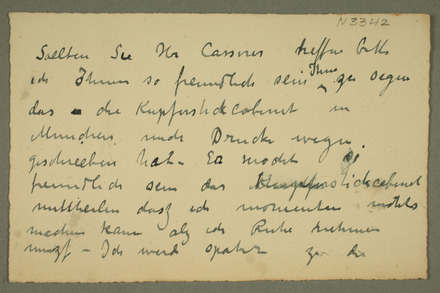 N 3342
Sollten Sie Hr Cassirer treffen bitte
ich Ihnen so freundlich sein Ihm zu sagen
das die Kupferstickcabinet in
Munchen mich Drucke wegen
geschrieben hat. Es mocht
freundlich sein das Kupferstickcabinet
mittheilen dasz ich momenten nichts
machen kann alz ich Ruhe nehmen
musz – Ich werd spater zu die